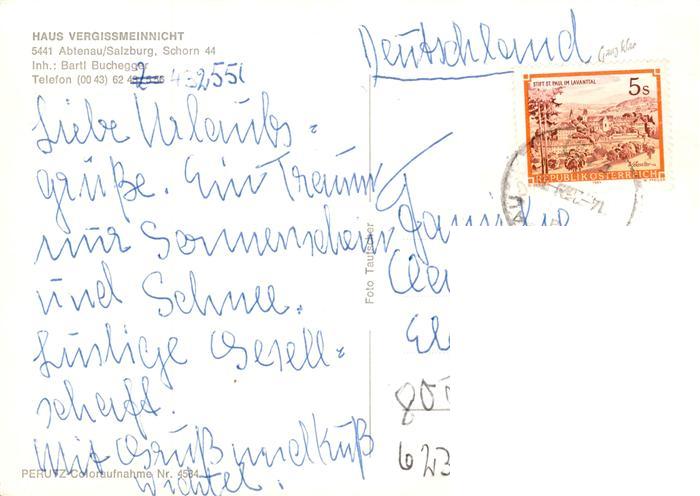 HAUS VERGISSMEINNICHT
5441 Abtenau/Salzburg, Schorn 44
Inh.: Bartl Buchegger
Telefon (00 43) 62 43 2551
Liebe Urlaubs-
grüße. Ein Traum
nur Sonnenschein
und Schnee.
Lustige Gesell-
schaft.
Mit Gruß und Kuß
Wichtel.
PERUTZ-Coloraufnahme Nr. 4584
Foto Tautscher
Deutschland
STIFT ST. PAUL IM LAVANTTAL
5 S
REPUBLIK ÖSTERREICH
Familie
80
623